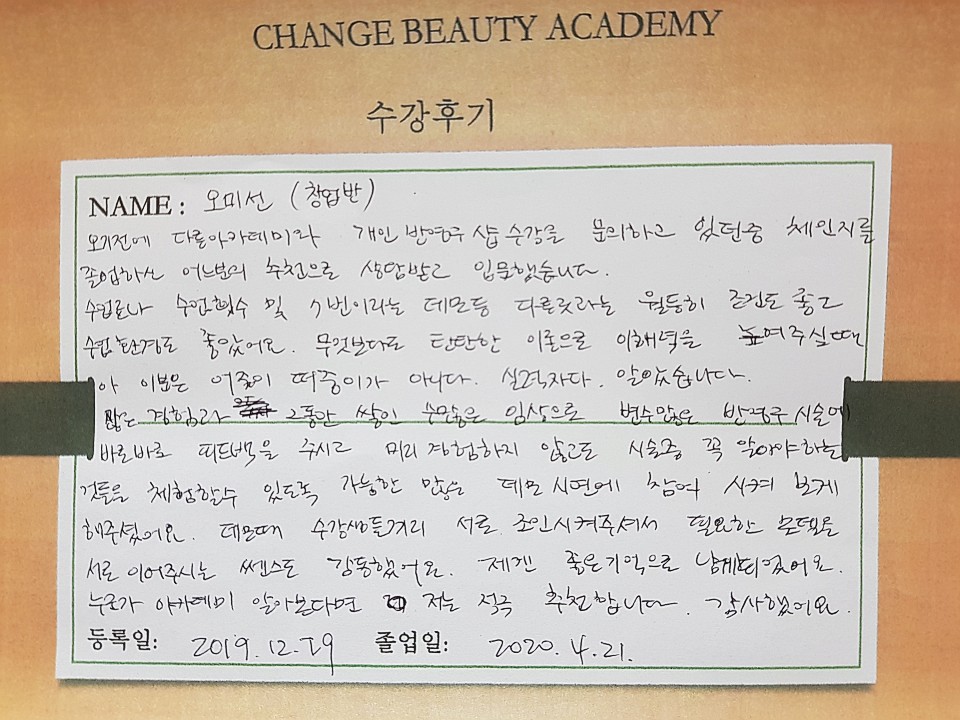 CHANGE BEAUTY ACADEMY
수강후기
NAME : 오미선 (창업반)
오기전에 다른아카데미와 개인 반영구 샵 수강을 문의하고 있던중 체인지를
졸업하신 어느분의 추천으로 상담받고 입문했습니다.
수업료나 수업횟수 및 기번이라는 데모등 다른곳과는 월등히 조건도 좋고
수업 환경도 좋았어요. 무엇보다도 탄탄한 이론으로 이해력을 높여주실때
아 이분은 어중이 떠중이가 아니다. 실력자다. 알았습니다.
많은 경험과 그동안 쌓인 수많은 임상으로 변수많은 반영구 시술에
바로바로 피드백을 주시고 미리 경험하지 않고도 시술중 꼭 알아야하는
것들을 체험할수 있도록 가능한 많은 데모 시연에 참여 시켜 보게
해주셨어요. 데모때 수강생들거리 서로 조인시켜주셔서 필요한 모델을
서로 이어주시는 쎈스도 감동했어요. 제겐 좋은기억으로 남게되었어요.
누군가 아카데미 알아본다면 저는 적극 추천합니다. 감사했어요.
등록일: 2019.12.19 졸업일: 2020.4.21.